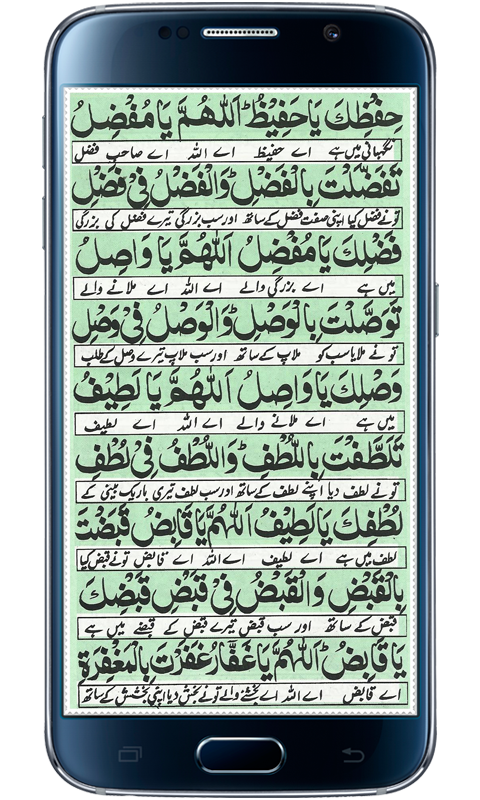 SAMSUNG
حِفْظِكَ يَا حَفِيْظُ اَللّٰهُمَّ يَا مُفْضِلُ
نگہبانی میں ہے اے حفیظ اے اللہ اے صاحب فضل
تَفَضَّلْتَ بِالْفَضْلِ وَالْفَضْلُ فِیْ فَضْلِ
تونے فضل کیا اپنی صفت فضل کے ساتھ اور سب بزرگی تیرے فضل کی بزرگی
فَضْلِكَ يَا مُفْضِلُ اَللّٰهُمَّ يَا وَاصِلُ
میں ہے اے بزرگی والے اے اللہ اے ملانے والے
تَوَصَّلْتَ بِالْوَصْلِ وَالْوَصْلُ فِیْ وَصْلِ
تو نے ملایا سب کو ملاپ کے ساتھ اور سب ملاپ تیرے وصل کے طلب
وَصْلِكَ يَا وَاصِلُ اَللّٰهُمَّ يَا لَطِيْفُ
میں ہے اے ملانے والے اے اللہ اے لطیف
تَلَطَّفْتَ بِاللُّطْفِ وَاللُّطْفُ فِیْ لُطْفِ
تونے لطف دیا اپنے لطف کے ساتھ اور سب لطف تیری باریک بینی کے
لُطْفِكَ يَا لَطِيْفُ اَللّٰهُمَّ يَا قَابِضُ قَبَضْتَ
لطف میں ہے اے لطیف اے اللہ اے قابض تونے قبض کیا
بِالْقَبْضِ وَالْقَبْضُ فِیْ قَبْضِ قَبْضِكَ
قبض کے ساتھ اور سب قبض تیرے قبض کے قبضے میں ہے
يَا قَابِضُ اَللّٰهُمَّ يَا غَفَّارُ غَفَرْتَ بِالْمَغْفِرَةِ
اے قابض اے اللہ اے بخشنے والے تونے بخش دیا اپنی بخشش کے ساتھ